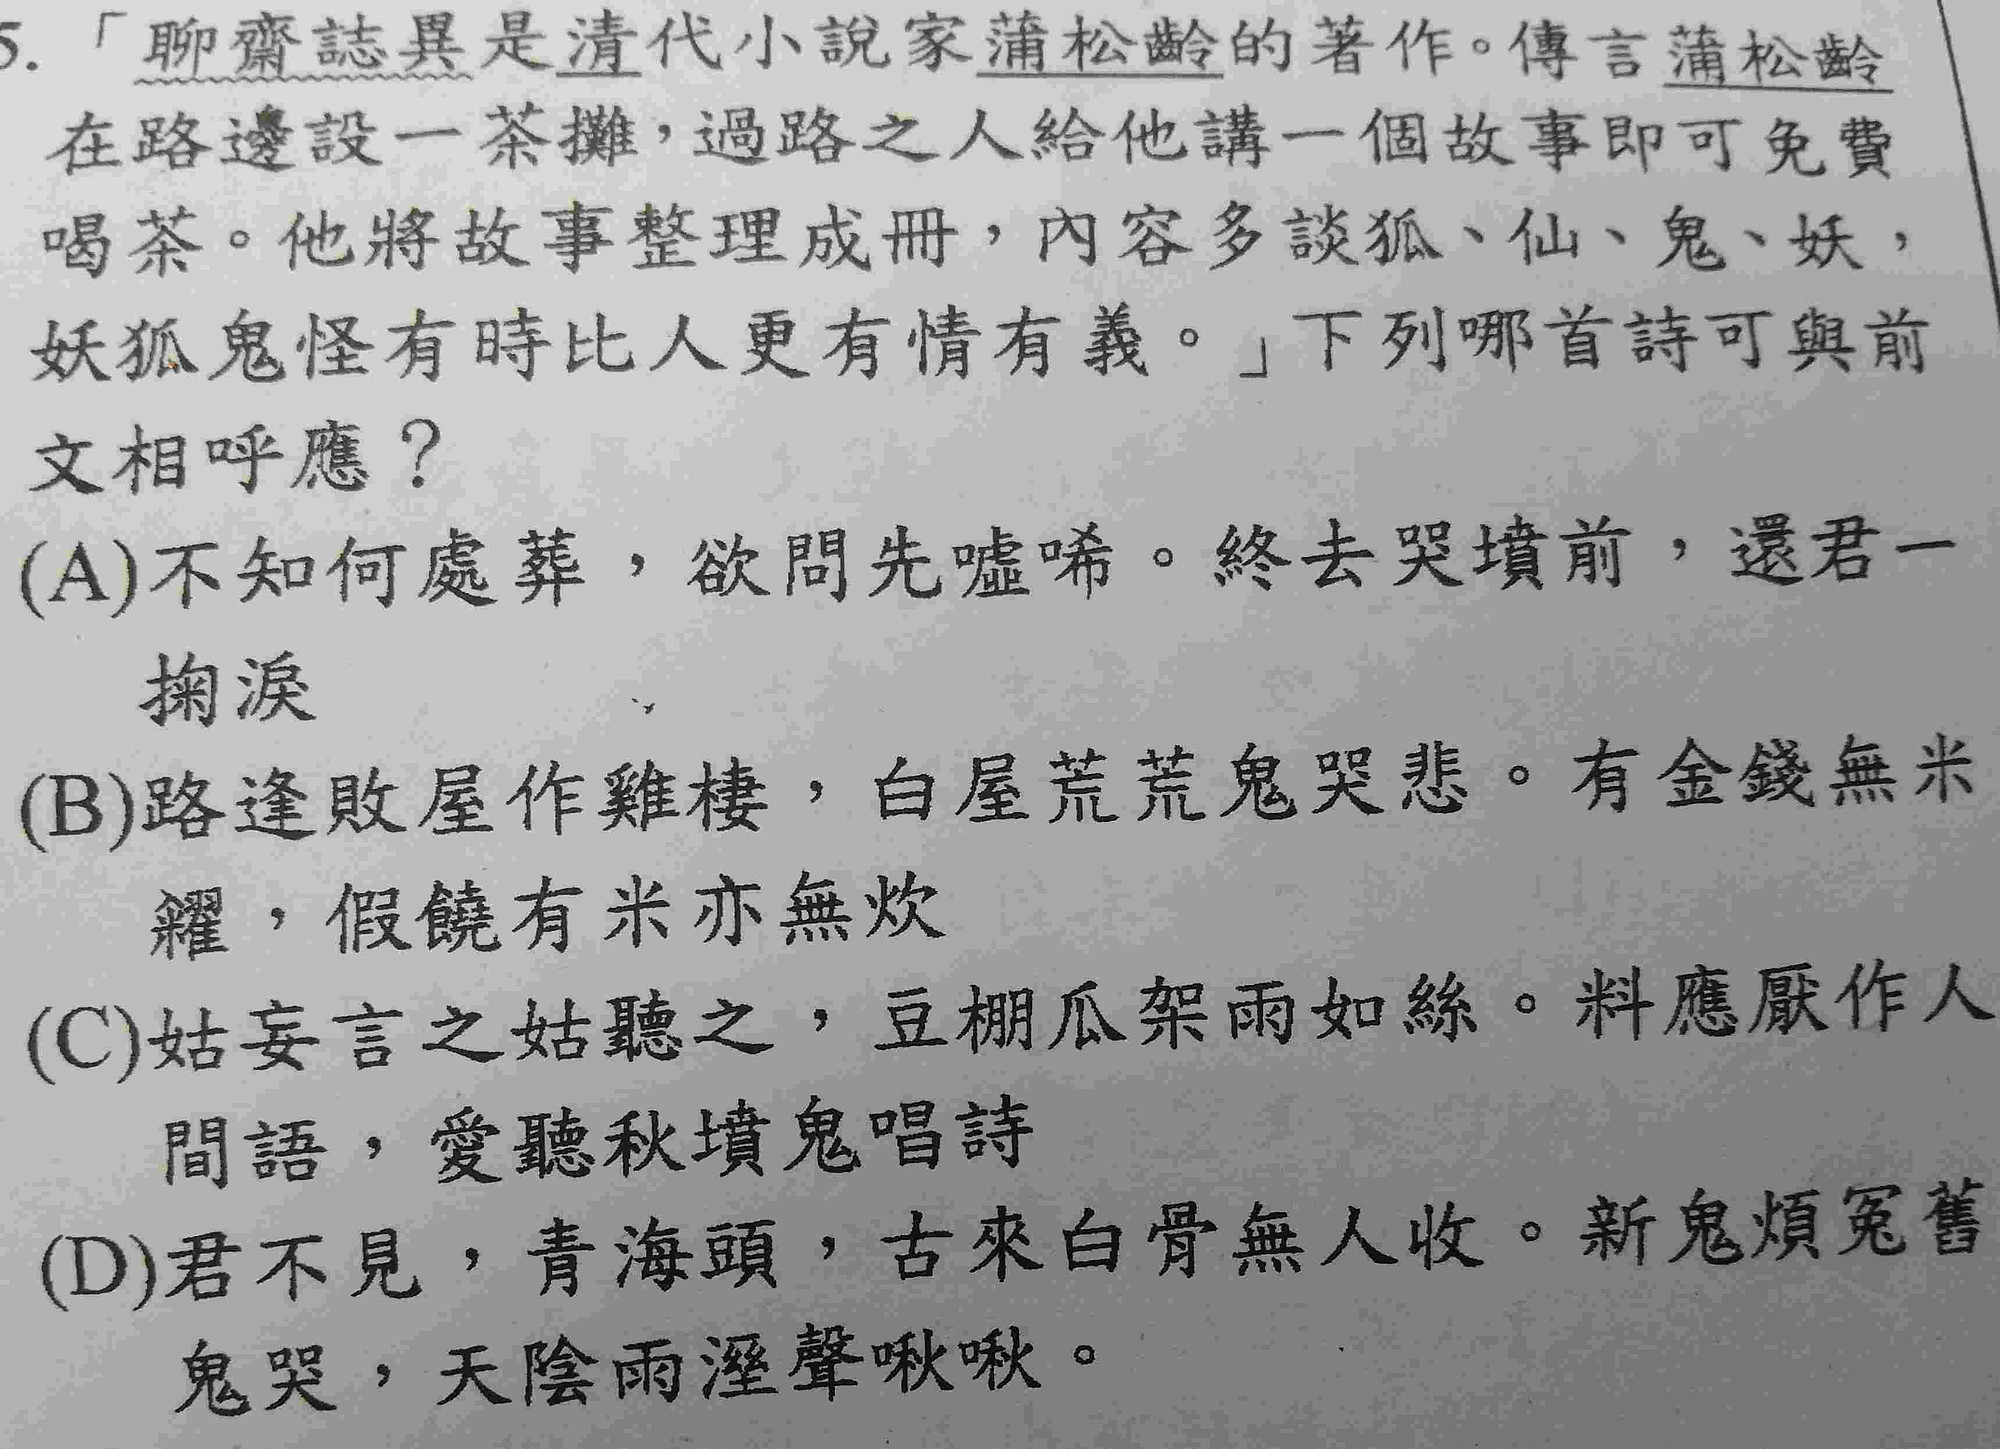 5.「聊齋誌異是清代小說家蒲松齡的著作。傳言蒲松齡
在路邊設一茶攤，過路之人給他講一個故事即可免費
喝茶。他將故事整理成冊，內容多談狐、仙、鬼、妖，
妖狐鬼怪有時比人更有情有義。」下列哪首詩可與前
文相呼應？
(A)不知何處葬，欲問先噓唏。終去哭墳前，還君一
掬淚
(B)路逢敗屋作雞棲，白屋荒荒鬼哭悲。有金錢無米
糴，假饒有米亦無炊
(C)姑妄言之姑聽之，豆棚瓜架雨如絲。料應厭作人
間語，愛聽秋墳鬼唱詩
(D)君不見，青海頭，古來白骨無人收。新鬼煩冤舊
鬼哭，天陰雨溼聲啾啾。